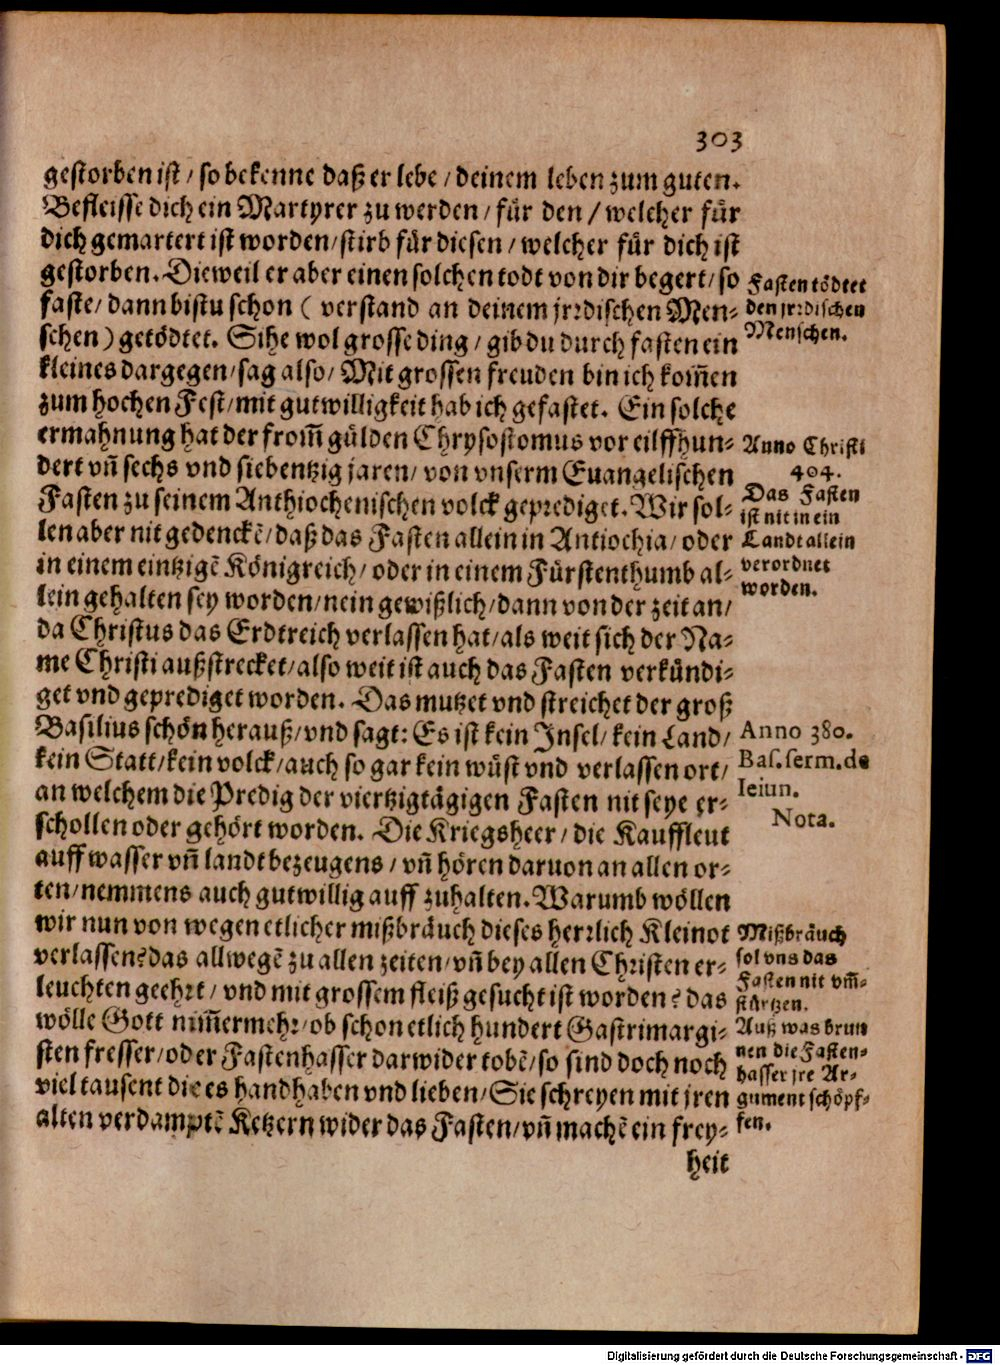 303
gestorben ist / so bekenne daß er lebe / deinem leben zum guten.
Befleisse dich ein Martyrer zu werden / für den / welcher für
dich gemartert ist worden / stirb für diesen / welcher für dich ist
gestorben. Dieweil er aber einen solchen todt von dir begert / so
faste / dann bistu schon ( verstand an deinem jrrdischen Men-
schen ) getödtet. Sihe wol grosse ding / gib du durch fasten ein
kleines dargegen / sag also / Mit grossen freuden bin ich kom̃en
zum hochen Fest / mit gutwilligkeit hab ich gefastet. Ein solche
ermahnung hat der from̃ gülden Chrysostomus vor eilffhun-
dert vñ sechs vnd siebentzig jaren / von vnserm Euangelischen
Fasten zu seinem Anthiochenischen volck geprediget. Wir sol-
len aber nit gedenckẽ / daß das Fasten allein in Antiochia / oder
in einem eintzigẽ Königreich / oder in einem Fürstenthumb al-
lein gehalten sey worden / nein gewißlich / dann von der zeit an /
da Christus das Erdtreich verlassen hat / als weit sich der Na-
me Christi außstrecket / also weit ist auch das Fasten verkündi-
get vnd geprediget worden. Das mutzet vnd streichet der groß
Basilius schön herauß / vnd sagt: Es ist kein Insel / kein Land /
kein Statt / kein volck / auch so gar kein wüst vnd verlassen ort /
an welchem die Predig der viertzigtägigen Fasten nit seye er-
schollen oder gehört worden. Die Kriegsheer / die Kauffleut
auff wasser vñ landt bezeugens / vñ hören daruon an allen or-
ten / nemmens auch gutwillig auff zuhalten. Warumb wöllen
wir nun von wegen etlicher mißbräuch dieses herrlich Kleinot
verlassen? das allwegẽ zu allen zeiten / vñ bey allen Christen er-
leuchten geehrt / vnd mit grossem fleiß gesucht ist worden? das
wölle Gott nim̃ermehr / ob schon etlich hundert Gastrimargi-
sten fresser / oder Fastenhasser darwider tobẽ / so sind doch noch
viel tausent die es handhaben vnd lieben / Sie schreyen mit jren
alten verdamptẽ Ketzern wider das Fasten / vñ machẽ ein frey-
heit
Fasten tödtet
den jrrdischen
Menschen.
Anno Christi
404.
Das Fasten
ist nit in ein
Landt allein
verordnet
worden.
Anno 380.
Bas. serm. de
Ieiun.
Nota.
Mißbräuch
sol vns das
Fasten nit vm̃-
stürtzen.
Auß was brun
nen die Fasten-
hasser jre Ar-
gument schöpf-
fen.
Digitalisierung gefördert durch die Deutsche Forschungsgemeinschaft - DFG